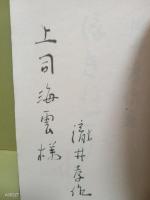 上司海雲様
瀧井孝作